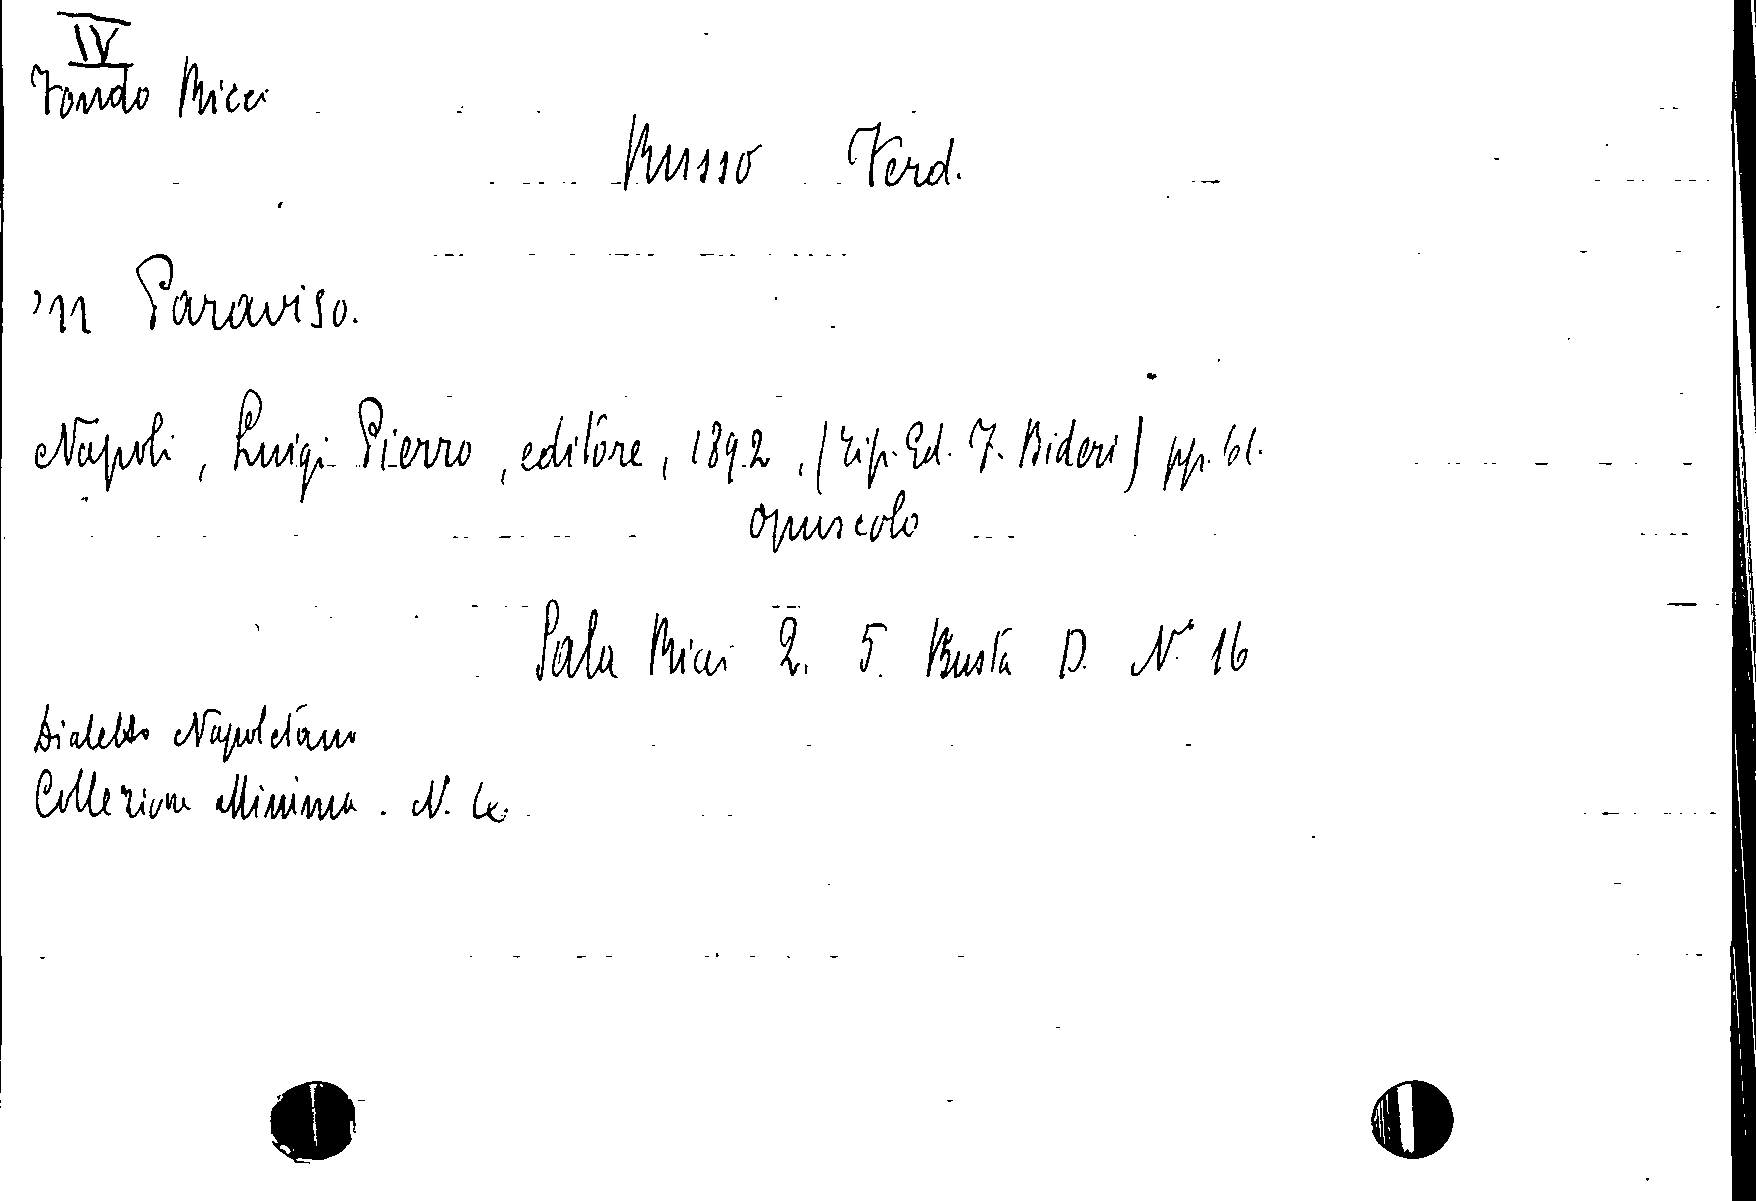 IV
Fondo Ricci
Russo Ferd.
'n Paraviso.
Napoli, Luigi Pierro, editore, 1892, (Tip. Ed. F. Bideri) pp. 61.
opuscolo
Sala Ricci 2. 5. Busta D. N. 16
Dialetto Napoletano
Collezione Minima. N. 4.